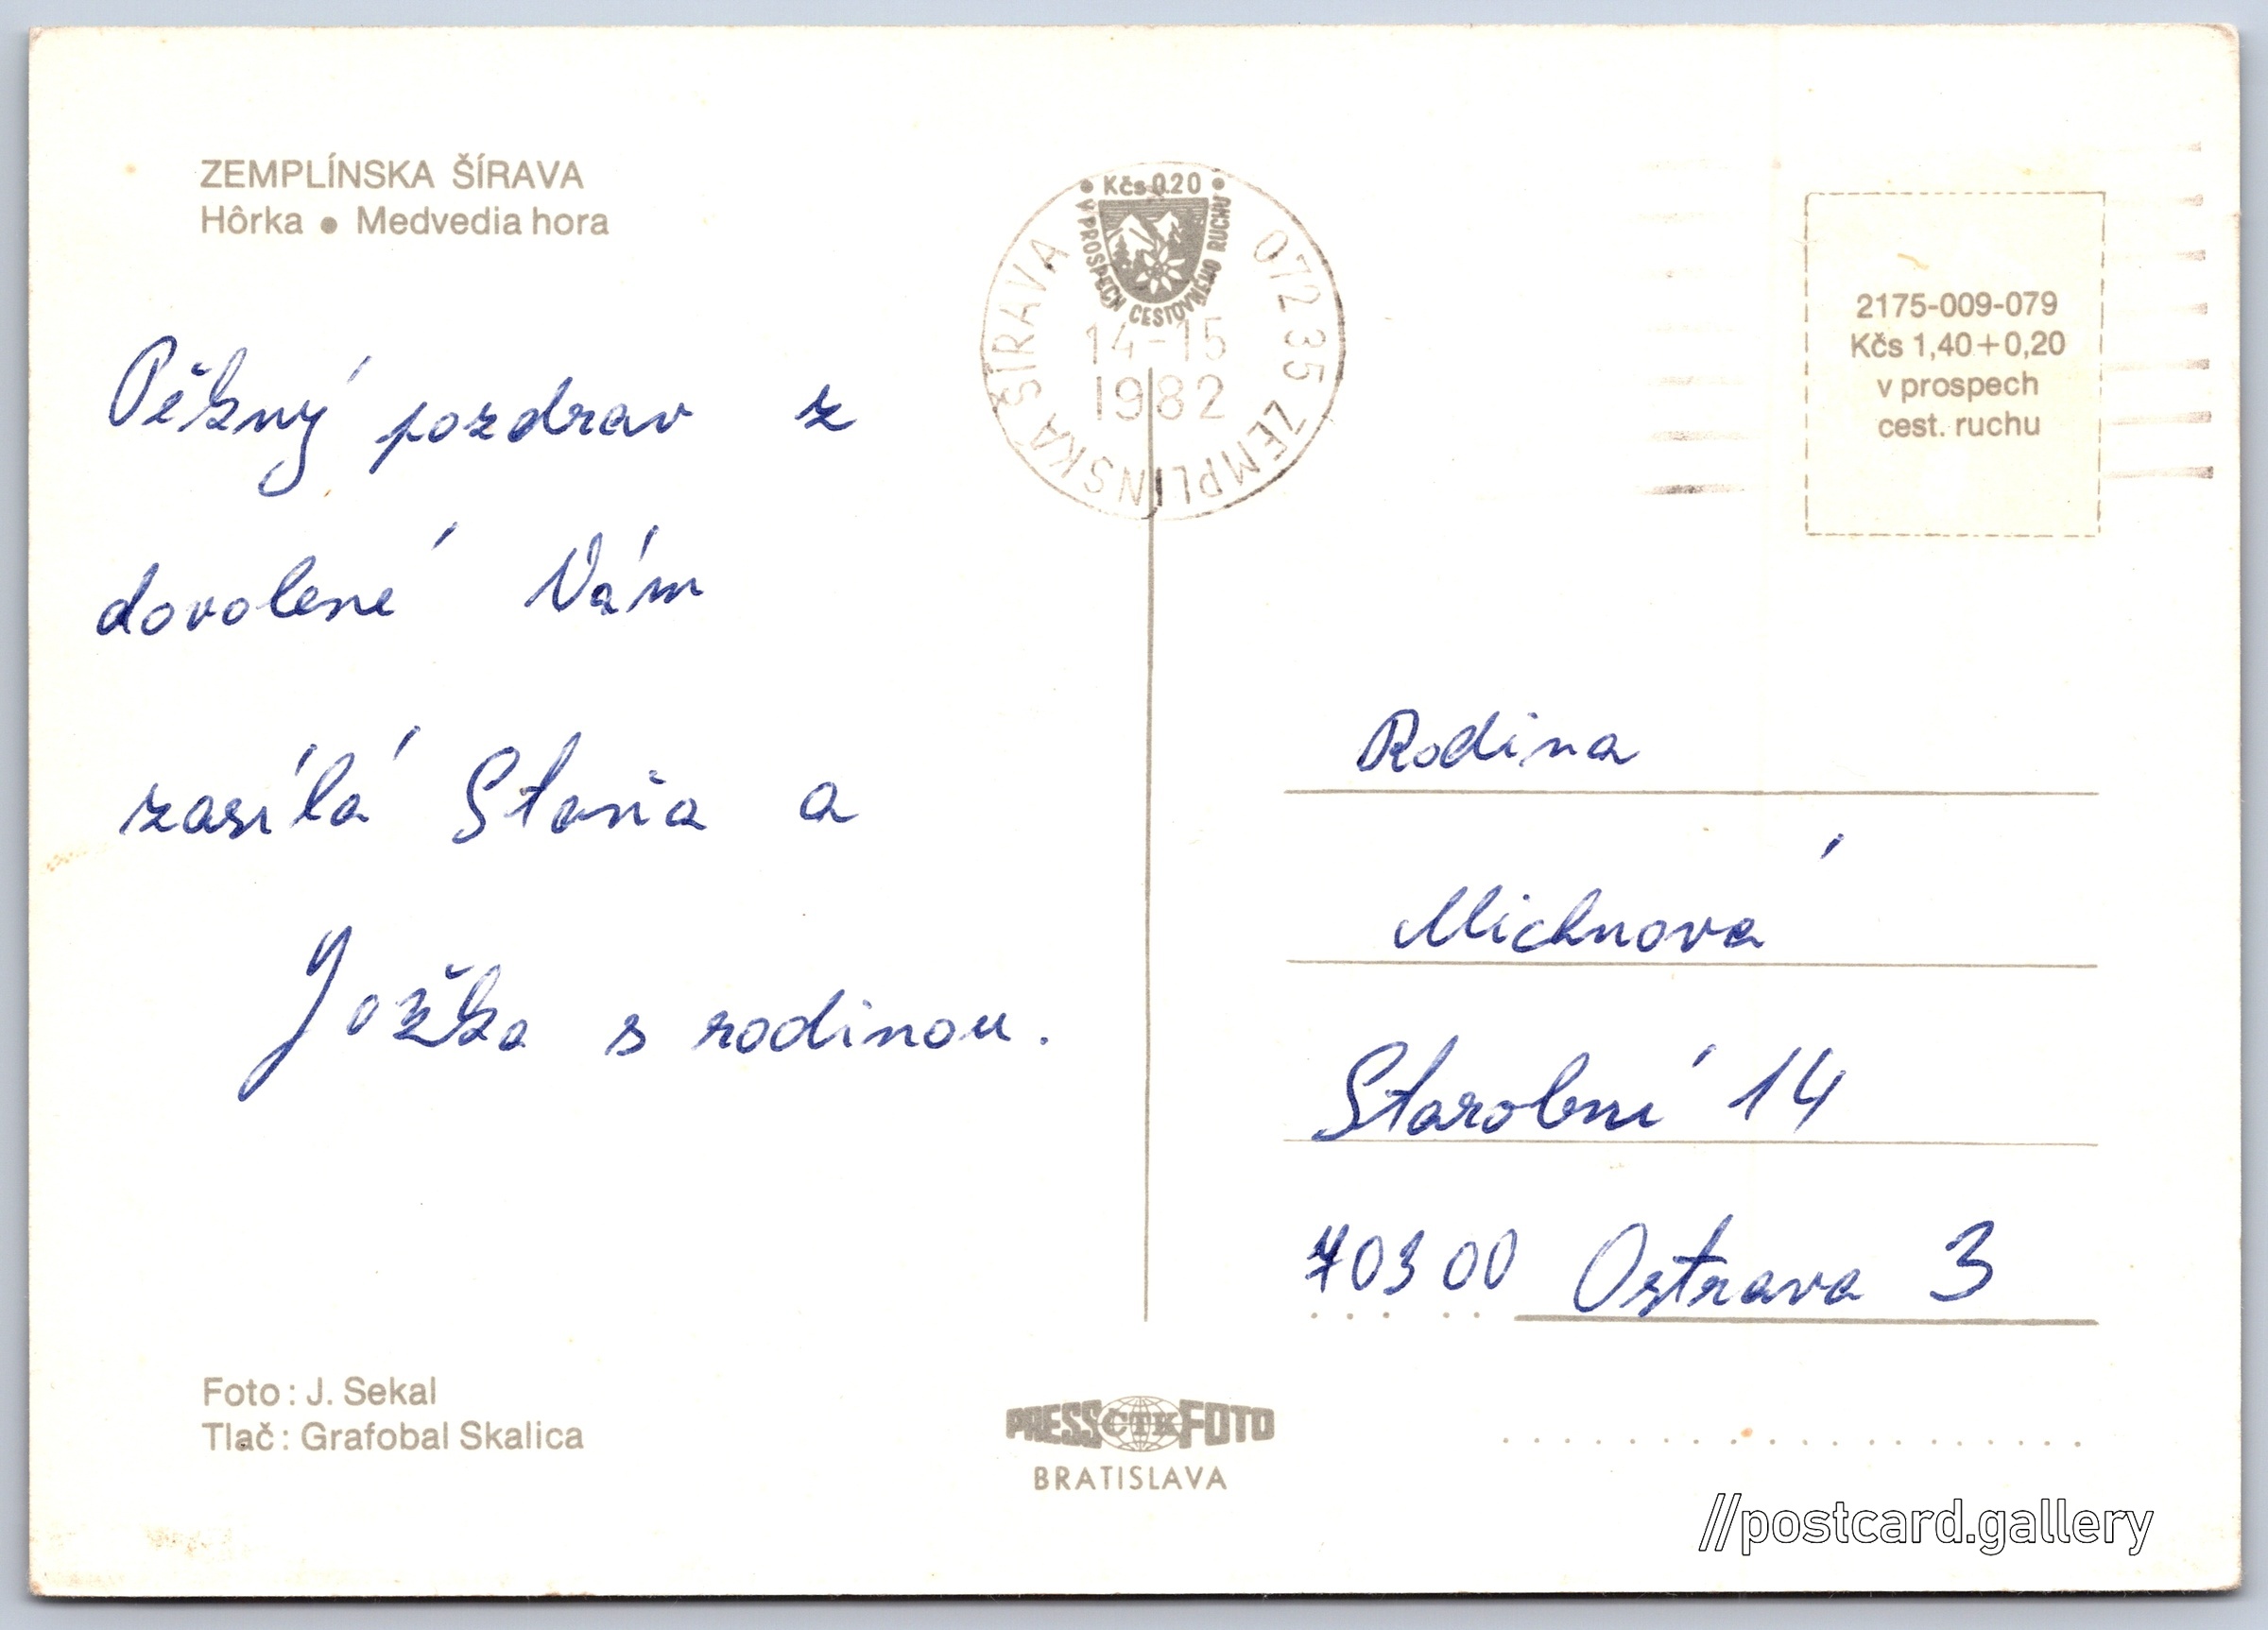 ZEMPLÍNSKA ŠÍRAVA
Hôrka • Medvedia hora
Pěkný pozdrav z
dovolené Vám
zasílá Staňa a
Jožka s rodinou.
Foto: J. Sekal
Tlač: Grafobal Skalica
• Kčs 0.20 •
V PROSPECH CESTOVNÉHO RUCHU
072 35 ZEMPLÍNSKA ŠÍRAVA
14-15
1982
PRESS ČTK FOTO
BRATISLAVA
2175-009-079
Kčs 1,40+0,20
v prospech
cest. ruchu
Rodina
Michnová
Starobní 14
703 00 Ostrava 3
//postcard.gallery